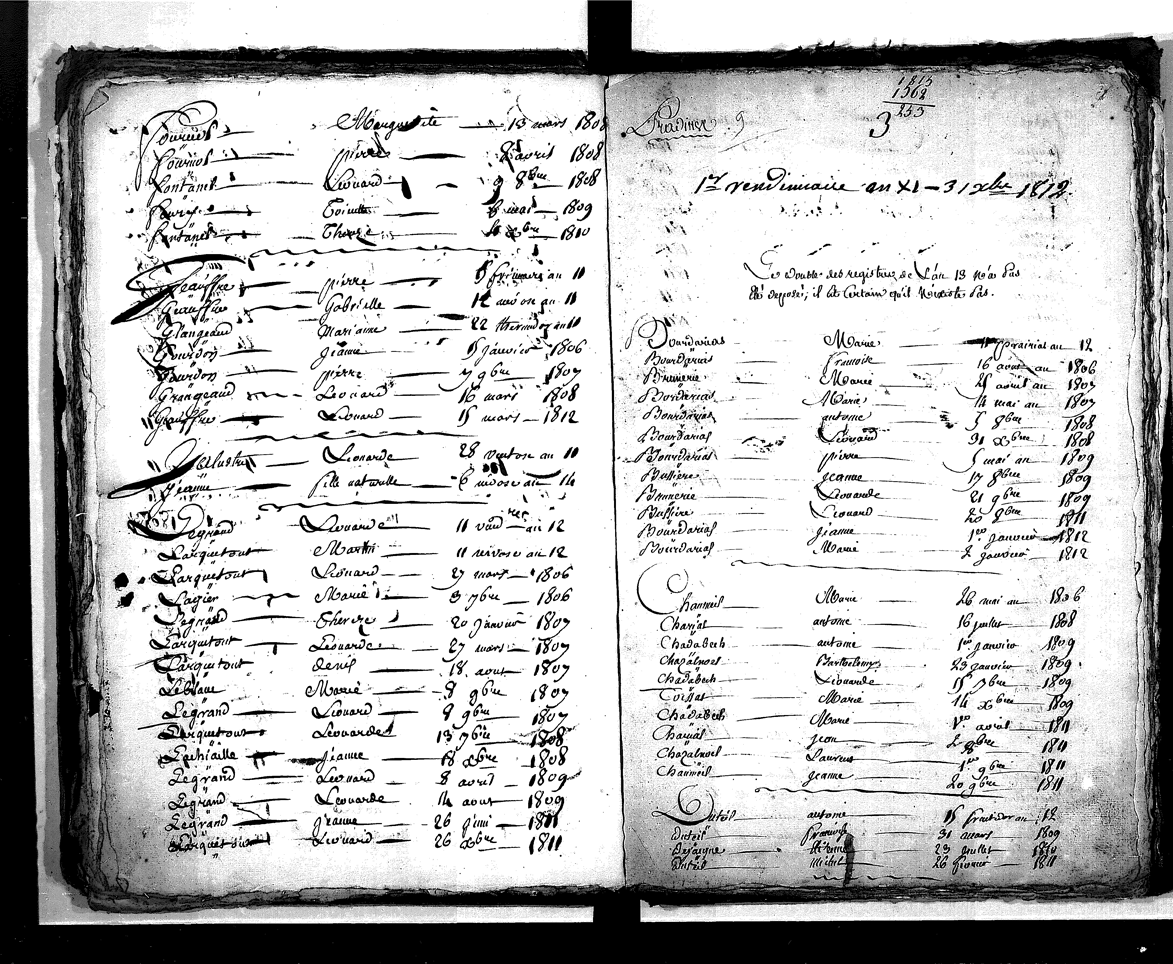 Fournol Marguerite 13 mars 1808
Fournol pierre 8 avril 1808
Fontanel Léonard 9 8bre 1808
Toinette mai 1809
Fontanel Therese xbre 1810
Geauffre pierre 15 frimere an 11
Geauffre Gabrielle 12 nivose an 11
Glangeaud Mariane 22 thermidor an 11
Gourdon jeanne 15 janvier 1806
Gourdon pierre 7 9bre 1807
Grangeaud Leonard 16 mars 1808
Geauffre Léonard 15 mars 1812
Leonarde 28 ventose an 10
jeanne fille naturelle 6 nivose an 14
Legrand Leonarde 11 vend an 12
Larquetout Martin 11 nivose an 12
Larquetout Leonard 27 mars 1806
Lagier Marie 3 7bre 1806
Legrand Therese 20 janvier 1807
Larquetout Leonarde 27 mars 1807
Larquetout denis 18 aout 1807
Leblanc Marie 8 9bre 1807
Legrand Léonard 8 9bre 1807
Larquetout Léonarde 13 7bre 1808
Lachiaille jeanne 18 xbre 1808
Legrand Léonard 8 avril 1809
Legrand Leonarde 14 aout 1809
Legrand jeanne 26 juin 1811
Léonard 26 xbre 1811
1815
1562
253
3
Pradines
1er vendimiaire an XI – 31 xbre 1812
Le double des registres de L'an 13 n'a pas
été déposé; il est Certain qu'il N'existe Pas.
Bourdarias Marie prairial an 12
Bourdarias francoise 16 aout an 1806
Brunerie Marie 25 avril an 1807
Bordarias Marie 14 mai an 1807
Bourdarias antoine 5 8bre 1808
Bourdarias Léonard 31 xbre 1808
Bourdarias pierre 5 mai an 1809
Bussiere jeanne 17 8bre 1809
Brunerie Léonarde 21 9bre 1809
Bussiere Léonard 20 8bre 1811
Bourdarias jeanne 1er janvier 1812
Bourdarias Marie 2 janvier 1812
Chaumeil Marie 26 mai an 1806
antoine 16 juillet 1808
Chadabech antoine 1er janvier 1809
Chazalnoel Barthelemy 23 janvier 1809
Chadabech Léonarde 15 7bre 1809
Coissat Marie 14 xbre 1809
Chadabech Marie 1er avril 1811
jean 2 8bre 1811
Chazalnoel Laurent 1er 9bre 1811
Chaumeil jeanne 20 9bre 1811
Duteil antoine 15 fructidor an 12
Duteil francois 31 mars 1809
Etienne 23 juillet 1810
Duteil Michel 26 fevrier 1811